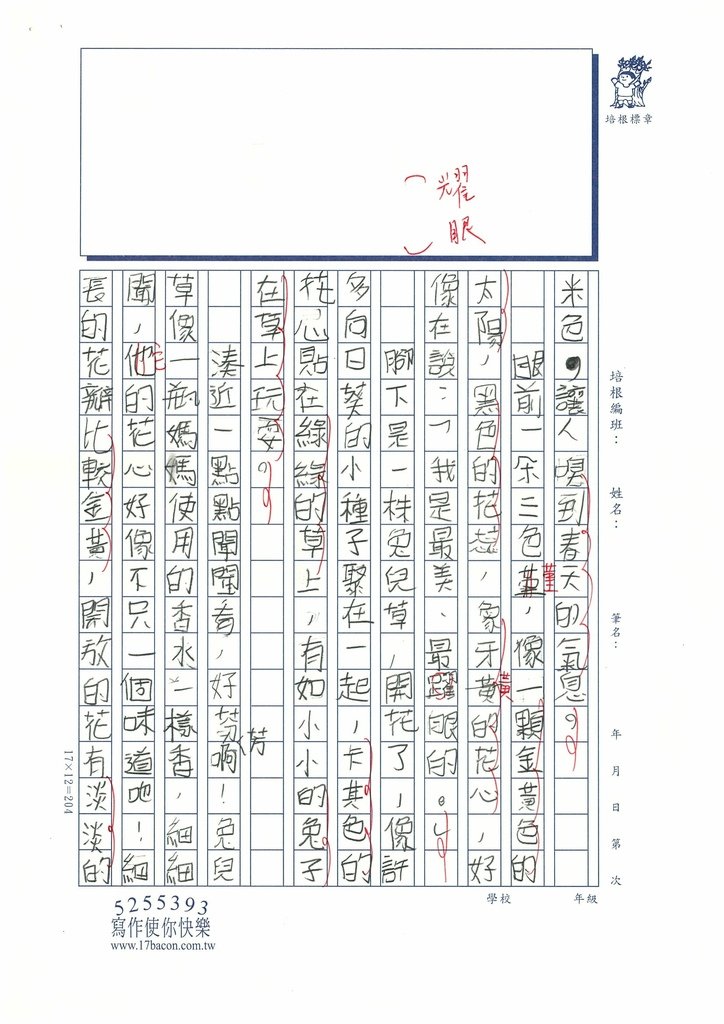 培根標章
耀
眼
培根編班：
姓名：
筆名：
年 月 日 第 次
米色，讓人嗅到春天的氣息。
眼前一朵三色菫，像一顆金黃色的
堇
太陽，黑色的花蕊，象牙黃的花心，好
黃
像在說：「我是最美、最耀眼的。」
腳下是一株兔兒草，開花了，像許
多向日葵的小種子聚在一起，卡其色的
花心點在綠綠的草上，有如小小的兔子
在草上玩耍。
湊近一點點聞聞看，好芬啊！兔兒
芳
草像一瓶媽媽使用的香水一樣香，細細
聞，他的花心好像不只一個味道吔！細
它
長的花瓣比較金黃，開放的花有淡淡的
17×12=204
學校
年級
5255393
寫作使你快樂
www.17bacon.com.tw